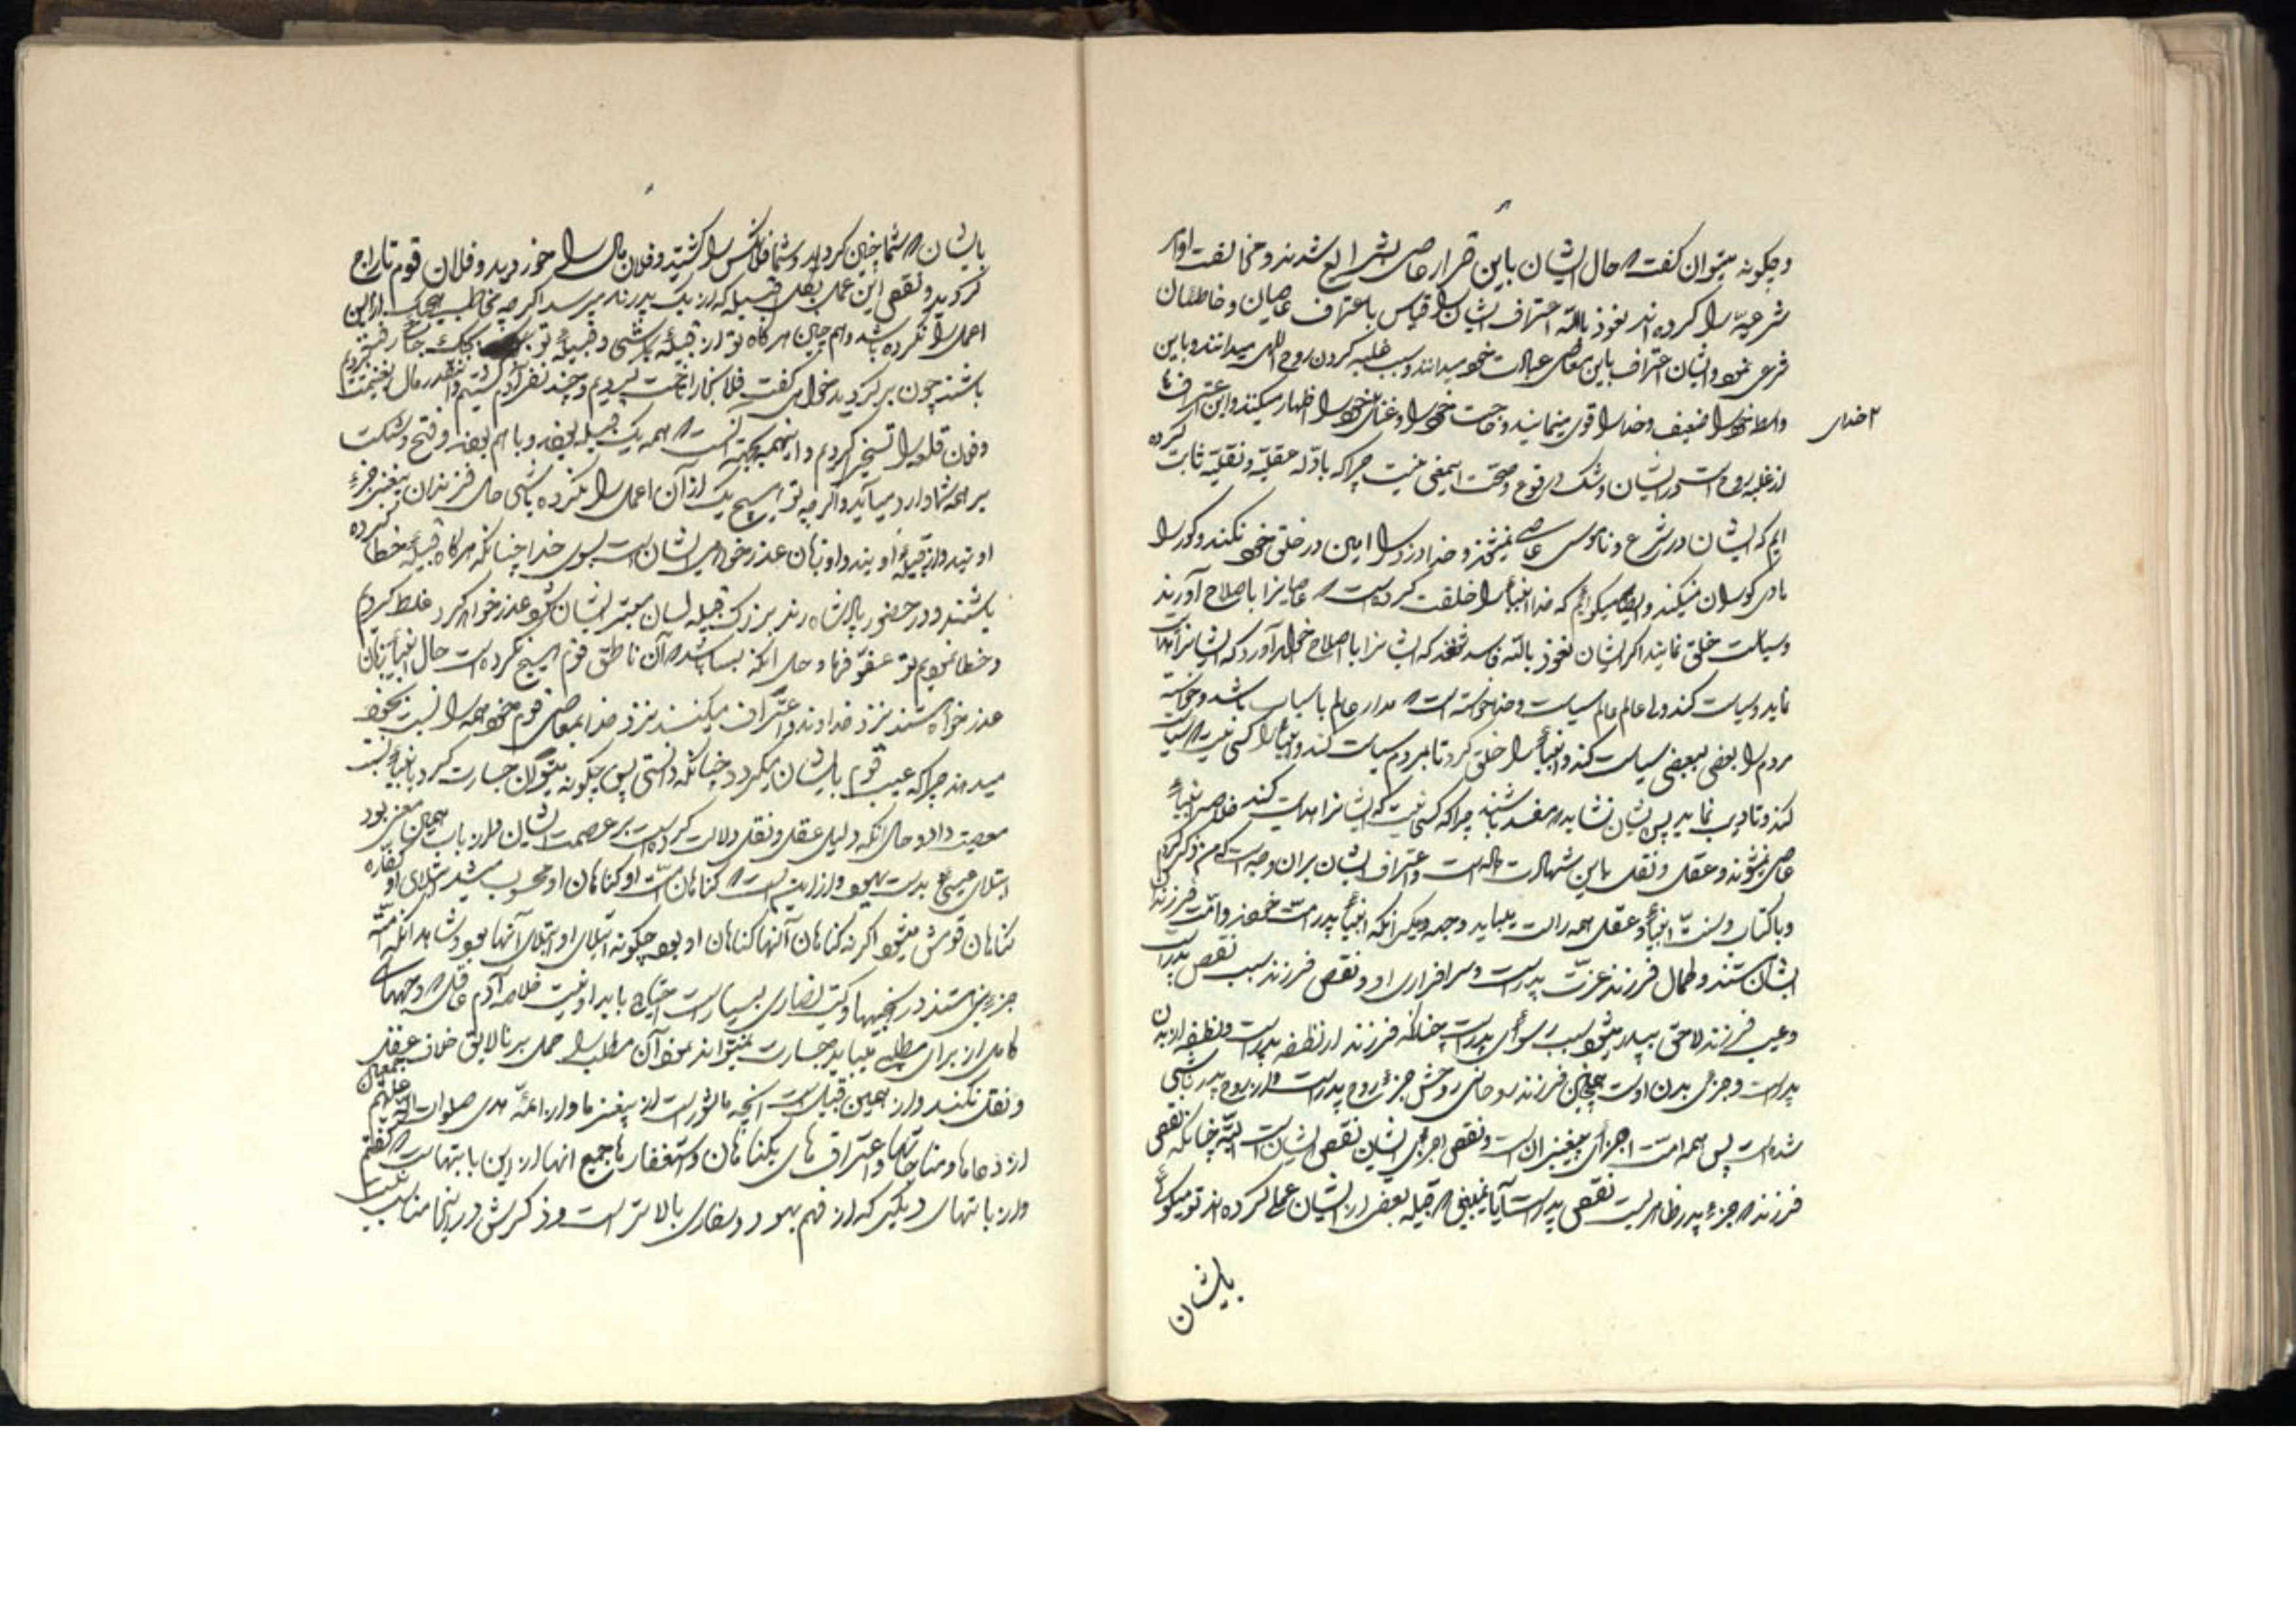 و چگونه میتوان گفت که حال ایشان باین قرار عاصی بشرایع شدند و مخالفت اوامر
شرعیّه را کرده‌اند نعوذ بالله اعتراف ایشان را قیاس باعتراف عاصیان و خاطئان
فرعی نمود و ایشان اعتراف باین معاصی عبادت خود میدانند و سبب غلبه کردن روح اللهی میدانند و باین
واسطه خود را ضعیف و خدا را قوی مینمایند و حاجت خود را و غنای خدای را اظهار میکنند و این اعترافها
از غلبه روح است در ایشان و شک در وقوع و صحت اینمعنی نیست چرا که بادلّه عقلیّه و نقلیّه ثابت کرده
ایم که ایشان در شرع و ناموس عاصی نمیشوند و خدا دزد را امین در خلق خود نکند و کور را
هادی کوران نمیکند و ایضا میگوئیم که خدا انبیا را خلقت کرده است که عاصیانرا باصلاح آورند
و سیاست خلق نمایند اگر ایشان نعوذ بالله فاسد شوند که ایشانرا باصلاح خواهد آورد که ایشانرا هدایت
نماید و سیاست کند و این عالم عالم سیاست و خدا خواسته است که مدار عالم باسباب باشد و خواسته
مردم را بعضی ببعضی سیاست کند و انبیا را خلق کرد تا مردم سیاست کنند و انبیا را کسی نیست که سیاست
کند و تادیب نماید پس ایشان نشاید که مفسد باشند چرا که کسی نیست که ایشانرا هدایت کند خلاصه انبیاء
عاصی نمیشوند و عقل و نقل باین شهادت داده است و اعتراف ایشان بران وجه است که من ذکر کردم
و با کتاب و سنت انبیا و عقل همه راست میاید و وجه دیگر آنکه انبیا پدر امت خودند و امّت فرزندان
ایشان هستند و کمال فرزند عزّت پدر است و سرافرازی او و نقص فرزند سبب نقص پدر است
و عیب فرزند لاحق بپدر میشود سبب رسوائی پدر است چنانکه فرزند از نطفه پدر است و نطفه از بدن
پدر است و جزء بدن اوست همچنین فرزند روحانی روحش جزء روح پدر است و از روح پدر ناشی
شده است پس همه امت اجزای پیغمبران است و نقص اجزای ایشان نقص ایشان است البته چنانکه نقص
فرزند که جزء پدر ظاهریست نقص پدر است آیا نمیبینی که قبیله بعضی از ایشان عملی کرده‌اند تو میگوئی
بایشان
۲ خدای
بایشان که شما چنان کرده‌اید و شما فلانکس را کشتید و فلان مال را خوردید و فلان قوم تاراج
کردید و نقص این عمل بکل قبیله که از یک پدرند میرسد اگر چه مخاطب هیچیک از این
اعمال را نکرده باشد و هم چنین هرگاه تو از قبیله باشی و قبیله تو بجنگ جائی رفته
باشند چون برگردید خواهی گفت فلانجا را تاخت کردیم و چند نفر آدم کشتیم و آنقدر مال بغنیمت آوردیم
و فلان قلعه را تسخیر کردیم و اینهمه بجهت آنست که همه یک قبیله بودید و با هم بودند و فتح و شکست
بر همه شما وارد میاید و اگر چه تو هیچ یک از آن اعمال را نکرده باشی حال فرزندان پیغمبر جزء
اویند و از قبیله اویند و او زبان عذرخواهی ایشان است بسوی خدا چنانکه هرگاه قبیله خطا کرده
باشند و در حضور پادشاه روند بزرگ قبیله لسان معتبر ایشان شود و عذرخواهد کرد غلط کردیم
و خطا نمودیم تو عفو فرما و حال آنکه بسا باشد که آن ناطق قوم هیچ نکرده است حال انبیا زبان
عذرخواه هستند نزد خداوند و اعتراف میکنند نزد خدا بمعاصی قوم خود و همه را نسبت بخود
میدهند چرا که عیب قوم بایشان میگردد چنانکه دانستی پس چگونه میتوان جسارت کرد بانبیا نسبت
معصیت داد و حال آنکه دلیل عقل و نقل دلالت کرده است بر عصمت ایشان و از باب همین معنی بود
ابتلای عیسیٰ بدست یهود و از اینست که گناهان امّت او گناهان او محسوب میشد و ابتلای او کفاره
گناهان قومش میشود اگر نه گناهان آنها گناهان او بود چگونه ابتلای او ابتلای آنها میبود و شاهد آنکه امّت
جزء نبی هستند در انجیلها و کتب نصاری بسیار است احتیاج بایراد نیست خلاصه آدم عاقل که وجههای
کاملی از برای مطلبی بیابد جسارت نمیتواند نمود آن مطلب را حمل بر نالایق خلاف عقل
و نقل نکند و از همین قبیل است آنچه ماثور است از پیغمبر ما و از ائمّه هدی صلوات الله علیهم اجمعین
از دعاها و مناجاتها و اعترافهای بگناهان و استغفارها جمیع آنها از این بابتهاست که گفتم
و از بابتهای دیگری که از فهم یهود و نصاری بالاتر است و ذکرش در اینجا مناسب نیست